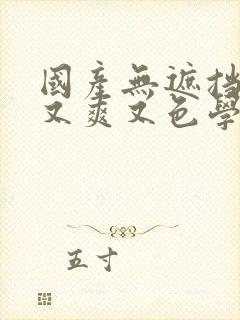 國產無遮挡
又爽又色學
五寸